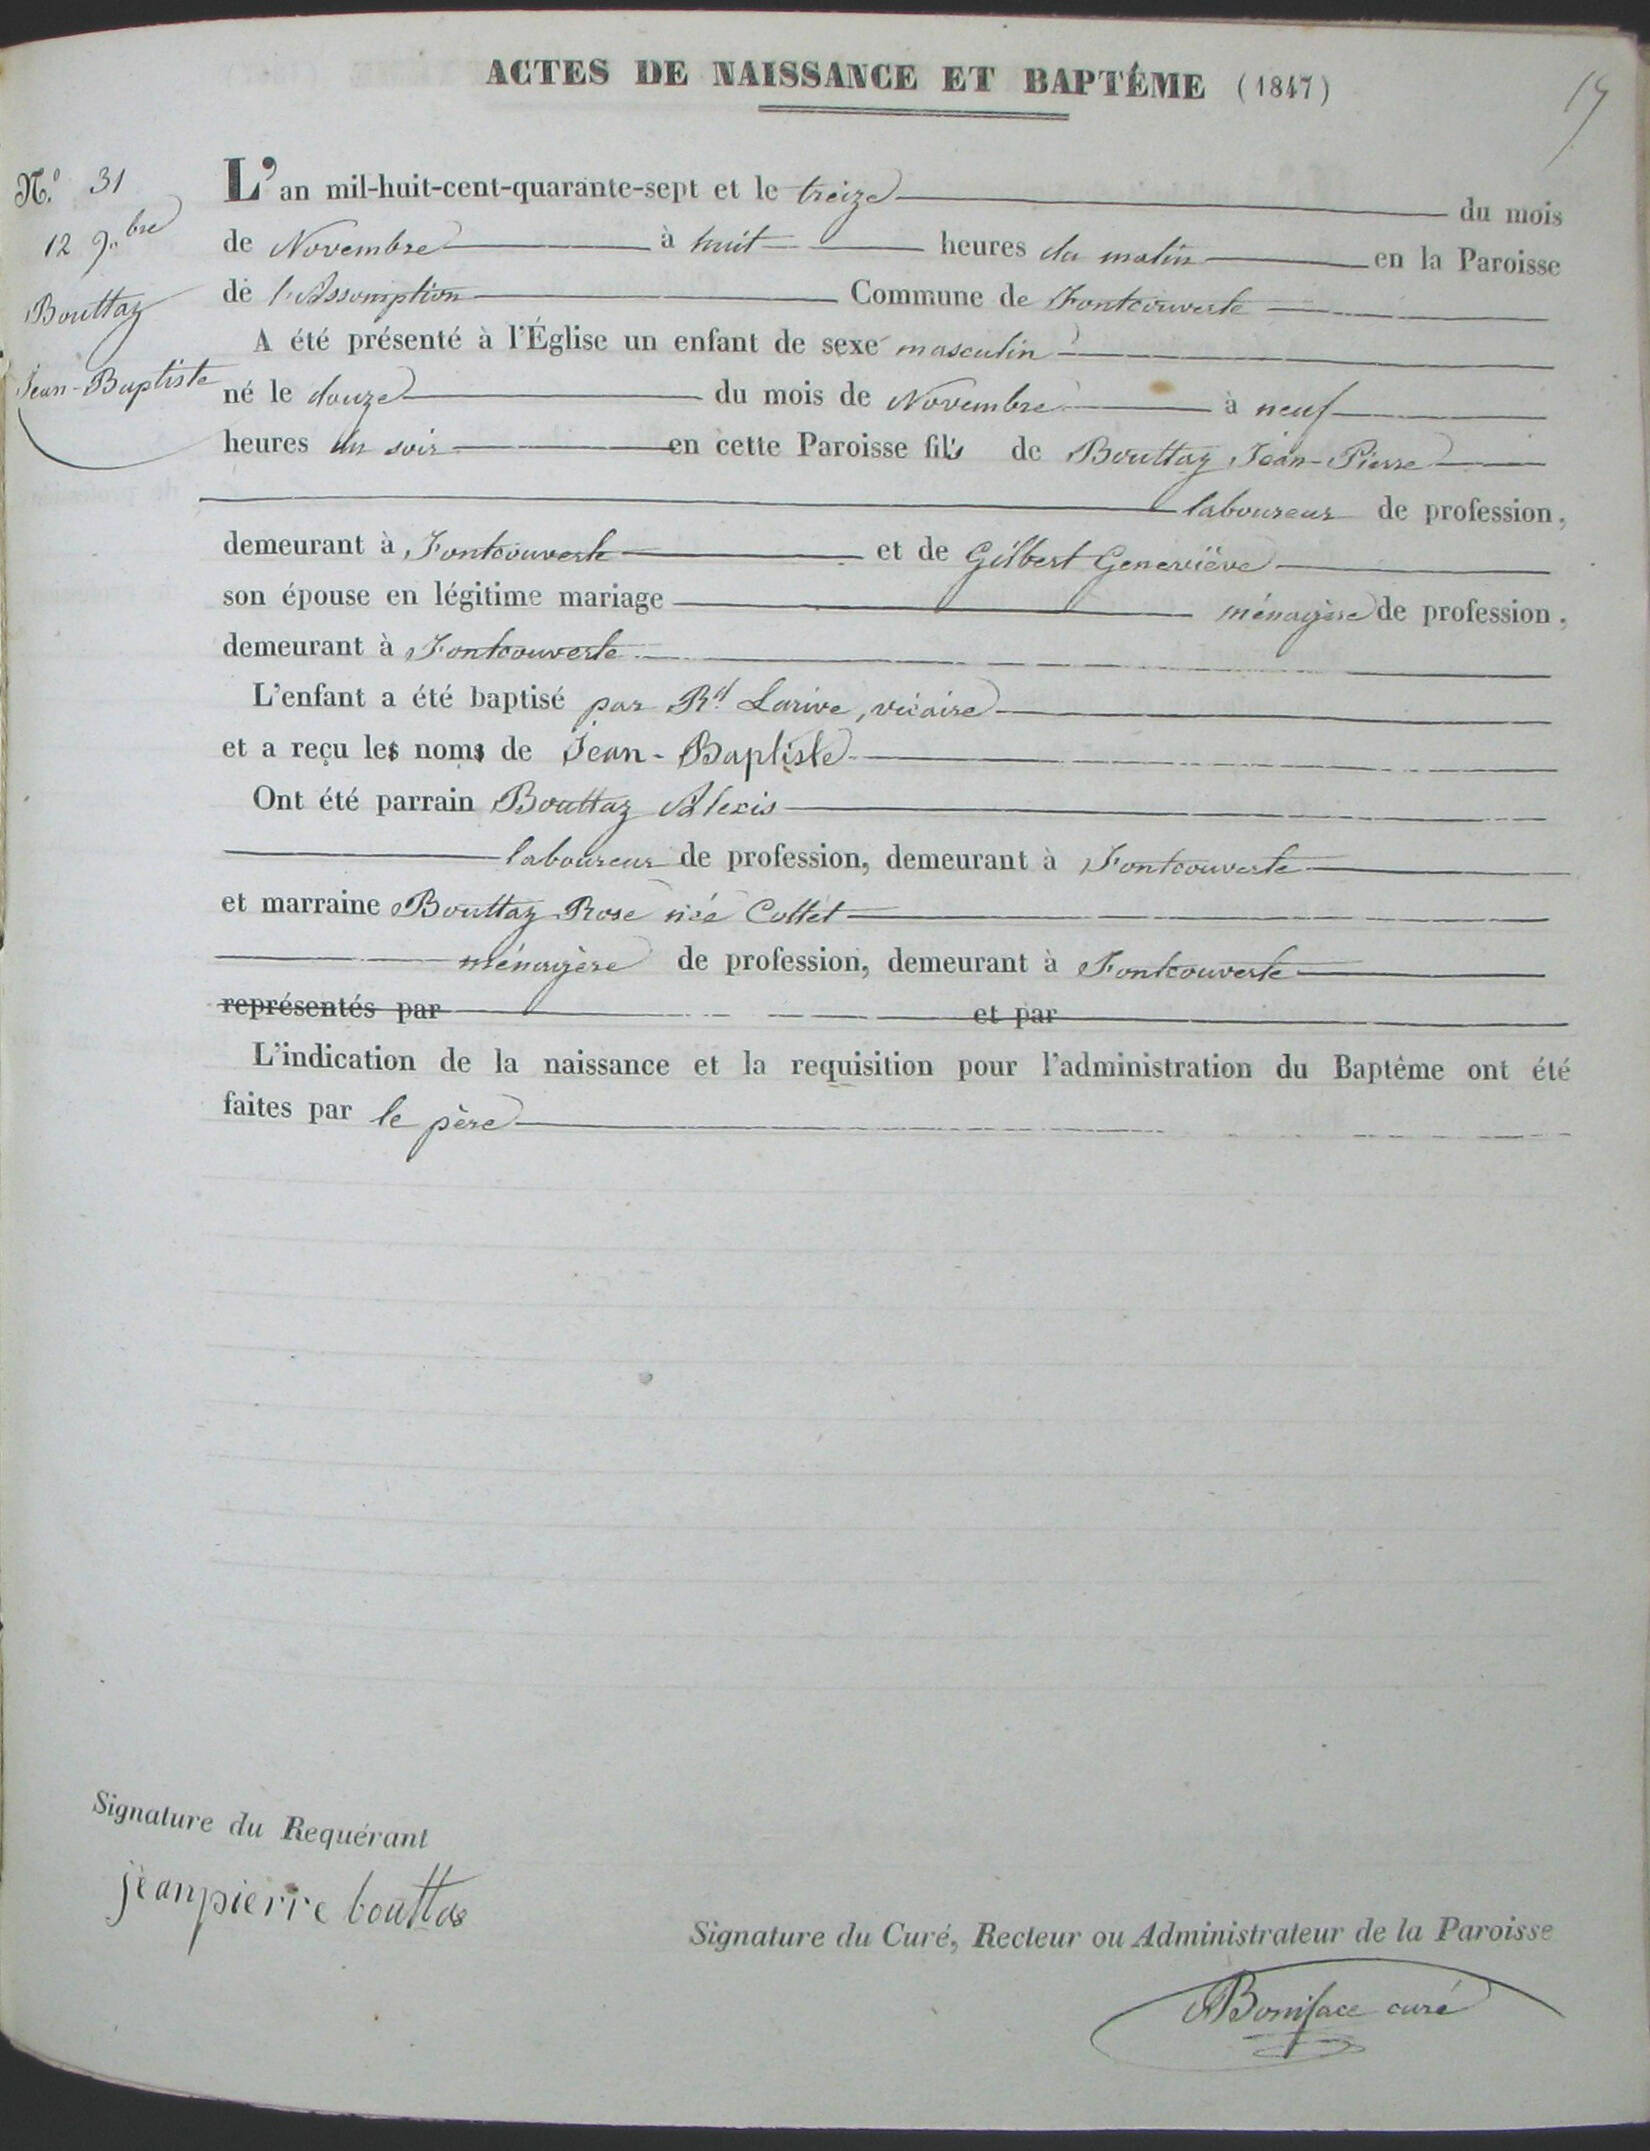 ACTES DE NAISSANCE ET BAPTÊME (1847)
N.º 31
12 9.bre
Bouttaz
Jean-Baptiste
L'an mil-huit-cent-quarante-sept et le treize du mois
de Novembre à huit heures du matin en la Paroisse
de l'Assomption Commune de Fontcouverte
A été présenté à l'Église un enfant de sexe masculin
né le douze du mois de Novembre à neuf
heures du soir en cette Paroisse fils de Bouttaz Jean-Pierre
laboureur de profession,
demeurant à Fontcouverte et de Gilbert Geneviève
son épouse en légitime mariage ménagère de profession,
demeurant à Fontcouverte
L'enfant a été baptisé par Rd. Larive, vicaire
et a reçu les noms de Jean-Baptiste
Ont été parrain Bouttaz Alexis
laboureur de profession, demeurant à Fontcouverte
et marraine Bouttaz Rose née Collet
ménagère de profession, demeurant à Fontcouverte
représentés par et par
L'indication de la naissance et la requisition pour l'administration du Baptême ont été
faites par le père
Signature du Requérant
jeanpierre bouttas
Signature du Curé, Recteur ou Administrateur de la Paroisse
Boniface curé